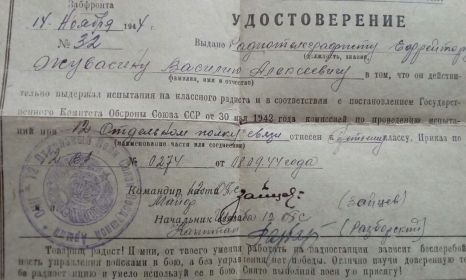 Забфронта
14 Ноября 1944 г.
УДОСТОВЕРЕНИЕ
№ 32 Выдано Радиотелеграфисту Ефрейтору
(должность, звание,
Жувасину Василию Алексеевичу в том, что он действи-
(фамилия, имя и отчество)
тельно выдержал испытания на классного радиста и в соответствии с постановлением Государст-
венного Комитета Обороны Союза ССР от 30 1942 года комиссией по проведению испыта-
ний при 12 Отдельном полку связи отнесен к классу. Приказ по
(наименование части или соединения)
12 ОПС № 0274 от 18.09.44 года
Командир
Майор (Зайцев)
Начальник Штаба 12 ОПС
Капитан
Товарищ радист! Помни, от твоего умения работать на радиостанции зависит бесперебой-
ность управления войсками в бою, а без управления нет победы. Отлично изучи доверенную те-
бе радиостанцию и умело используй ее в бою. Свято выполняй воен ую присягу!